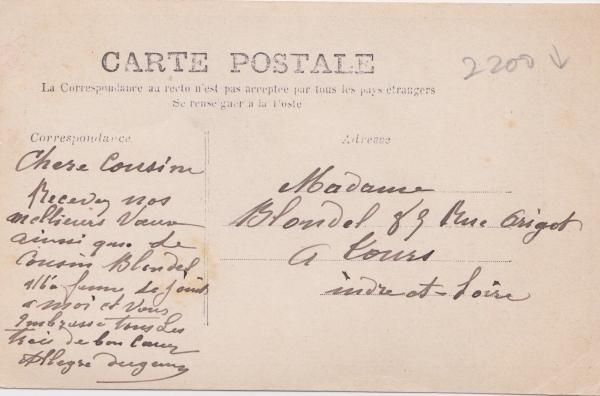 2200
CARTE POSTALE
La Correspondance au recto n'est pas acceptée par tous les pays étrangers
Se renseigner à la Poste
Correspondance
Adresse
Chere Cousine
Recevez nos
mellieurs Vœux
ainsi que de
Cousin Blondel
Ma fame se joint
a moi et vous
Embrasse tous les
trois de bon Cœur
Allegre
Madame
Blondel 89 Rue Origet
a Tours
indre et Loire